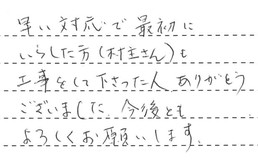 早い対応で最初に
いらした方(村主さん)も
工事をして下さった人 ありがとう
ございました。今後とも
よろしくお願いします。